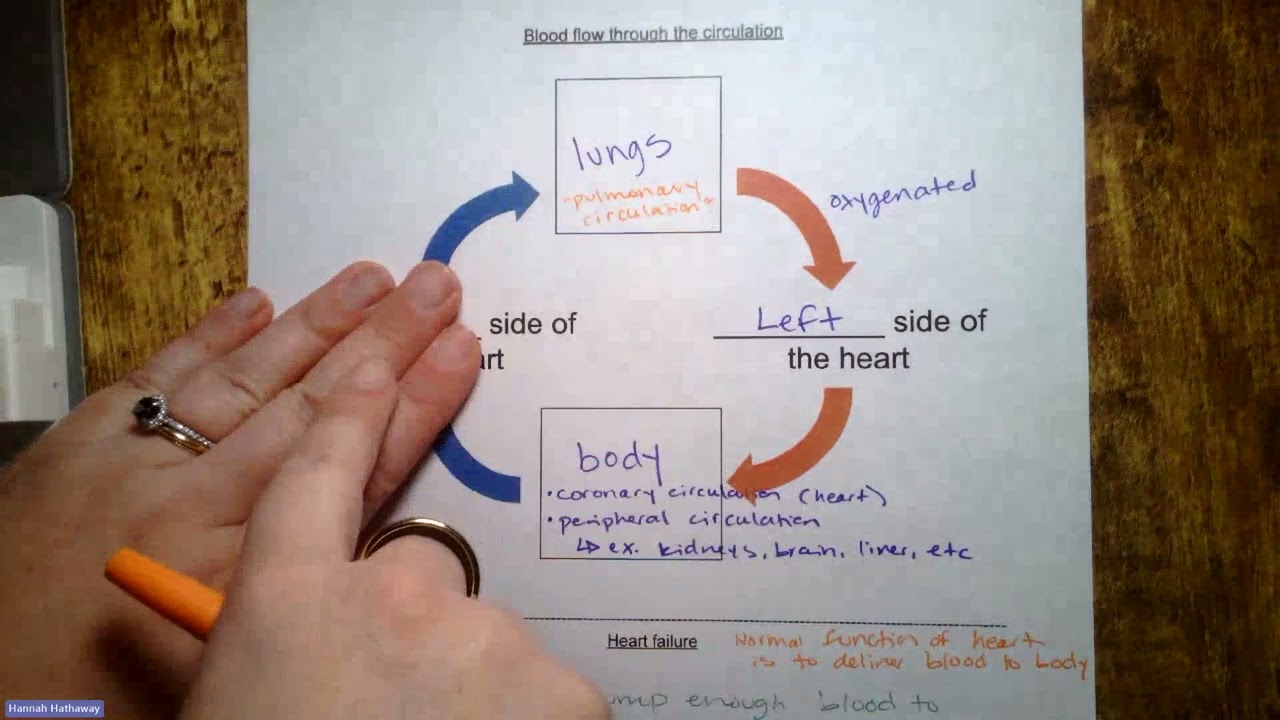 Blood flow through the circulation
lungs
"pulmonary
circulation"
oxygenated
side of
Left side of
the heart
body
• coronary circulation (heart)
• peripheral circulation
↳ ex. kidneys, brain, liver, etc
Heart failure Normal function of heart
is to deliver blood to body
enough blood to
Hannah Hathaway